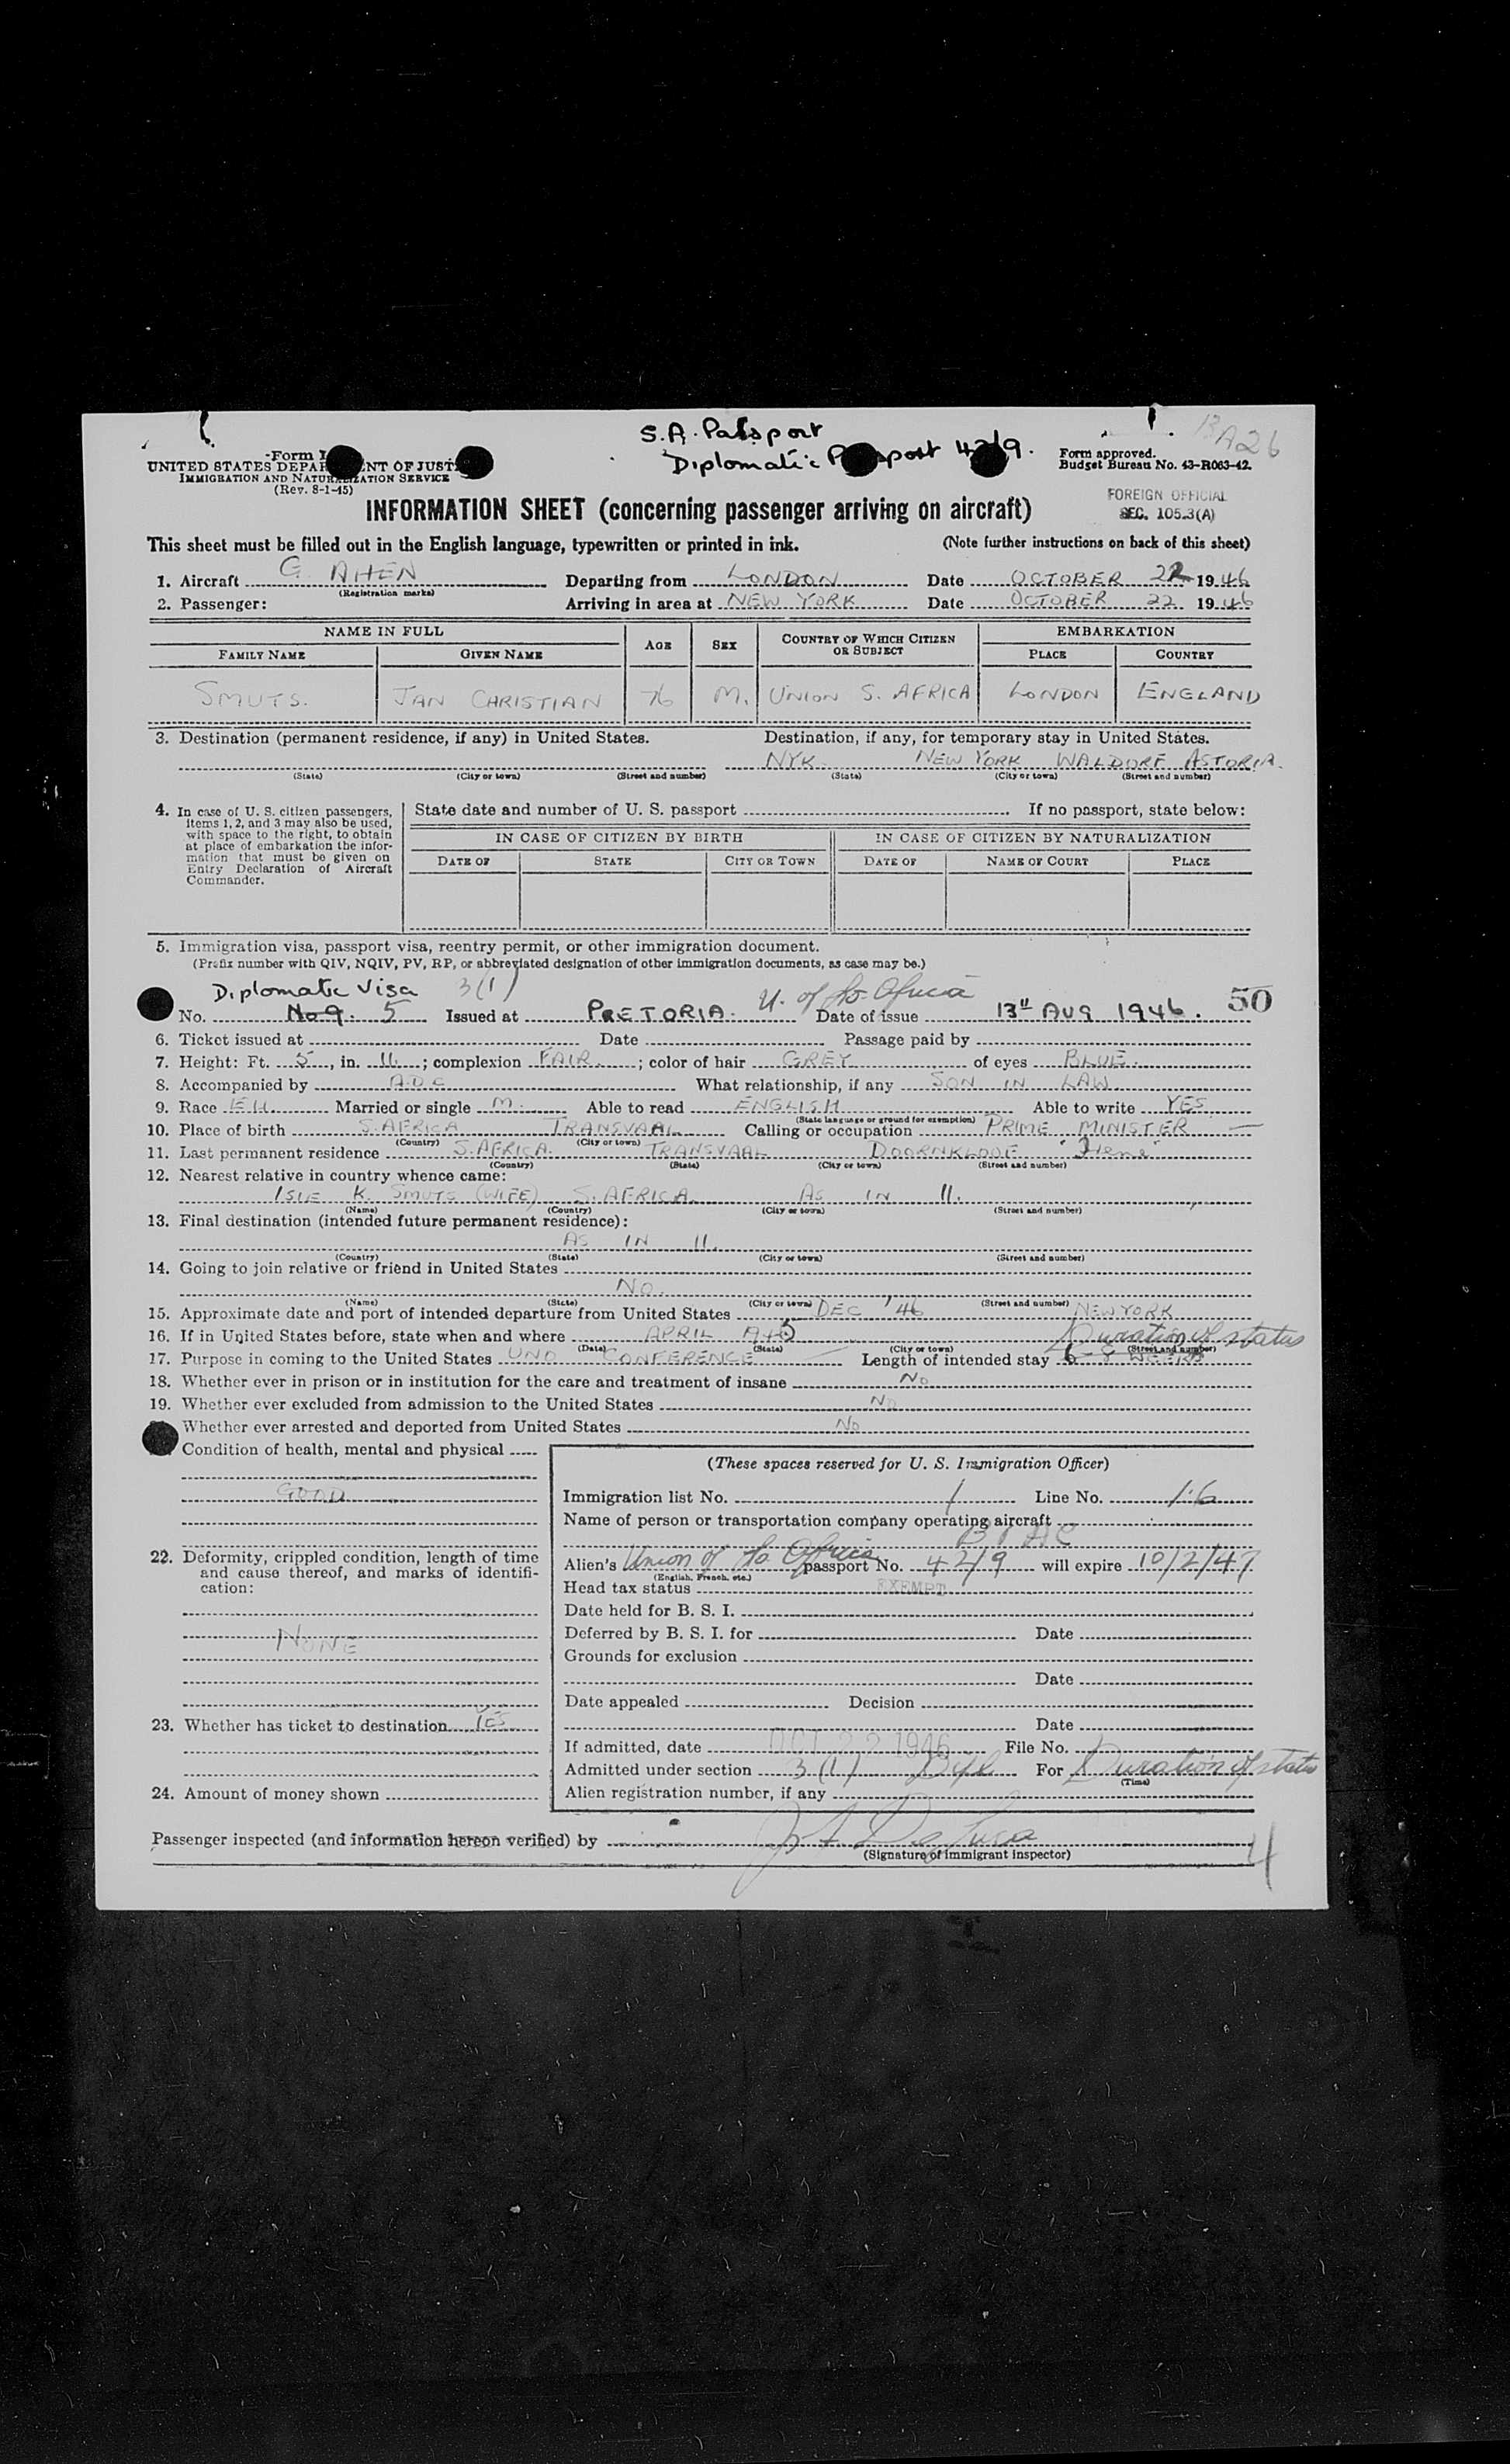 S.A. Passport
Diplomatic Passport 42/9.
13 A26
-Form I
UNITED STATES DEPARTMENT OF JUSTICE
IMMIGRATION AND NATURALIZATION SERVICE
(Rev. 8-1-45)
Form approved.
Budget Bureau No. 43-R063-42.
FOREIGN OFFICIAL
SEC. 105.3(A)
INFORMATION SHEET (concerning passenger arriving on aircraft)
This sheet must be filled out in the English language, typewritten or printed in ink. (Note further instructions on back of this sheet)
1. Aircraft G. AHEN Departing from LONDON Date OCTOBER 22 1946
(Registration marks)
2. Passenger: Arriving in area at NEW YORK Date OCTOBER 22 1946
NAME IN FULL AGE SEX COUNTRY OF WHICH CITIZEN OR SUBJECT EMBARKATION
FAMILY NAME GIVEN NAME PLACE COUNTRY
SMUTS. JAN CHRISTIAN 76 M. UNION S. AFRICA LONDON ENGLAND
3. Destination (permanent residence, if any) in United States. Destination, if any, for temporary stay in United States.
NYK. NEW YORK WALDORF ASTORIA.
(State) (City or town) (Street and number) (State) (City or town) (Street and number)
4. In case of U. S. citizen passengers, items 1, 2, and 3 may also be used, with space to the right, to obtain at place of embarkation the information that must be given on Entry Declaration of Aircraft Commander.
State date and number of U. S. passport If no passport, state below:
IN CASE OF CITIZEN BY BIRTH IN CASE OF CITIZEN BY NATURALIZATION
DATE OF STATE CITY OR TOWN DATE OF NAME OF COURT PLACE
5. Immigration visa, passport visa, reentry permit, or other immigration document.
(Prefix number with QIV, NQIV, PV, RP, or abbreviated designation of other immigration documents, as case may be.)
Diplomatic Visa 3(1) U. of So. Africa
No. No 9. 5 Issued at PRETORIA. Date of issue 13th AUG 1946. 50
6. Ticket issued at Date Passage paid by
7. Height: Ft. 5, in. 11; complexion FAIR; color of hair GREY of eyes BLUE.
8. Accompanied by ADC What relationship, if any SON IN LAW
9. Race EH. Married or single M. Able to read ENGLISH Able to write YES
(State language or ground for exemption)
10. Place of birth S. AFRICA TRANSVAAL Calling or occupation PRIME MINISTER
(Country) (City or town)
11. Last permanent residence S. AFRICA. TRANSVAAL DOORNKLOOF Irene
(Country) (State) (City or town) (Street and number)
12. Nearest relative in country whence came:
ISIE K. SMUTS (WIFE) S. AFRICA AS IN 11.
(Name) (Country) (City or town) (Street and number)
13. Final destination (intended future permanent residence):
AS IN 11.
(Country) (State) (City or town) (Street and number)
14. Going to join relative or friend in United States
NO.
(Name) (State) (City or town) (Street and number)
15. Approximate date and port of intended departure from United States DEC '46 NEW YORK
16. If in United States before, state when and where APRIL 45
(Date) (State) (City or town) (Street and number)
Duration of status
17. Purpose in coming to the United States UNO CONFERENCE Length of intended stay 6-8 WEEKS
18. Whether ever in prison or in institution for the care and treatment of insane No
19. Whether ever excluded from admission to the United States No
Whether ever arrested and deported from United States No
Condition of health, mental and physical
GOOD
22. Deformity, crippled condition, length of time and cause thereof, and marks of identification:
NONE
23. Whether has ticket to destination YES
24. Amount of money shown
(These spaces reserved for U. S. Immigration Officer)
Immigration list No. 1 Line No. 16
Name of person or transportation company operating aircraft
Alien's Union of So. Africa passport No. 42/9 will expire 10/2/47
(English, French, etc.)
Head tax status EXEMPT
Date held for B. S. I.
Deferred by B. S. I. for Date
Grounds for exclusion
Date
Date appealed Decision
Date
If admitted, date OCT 22 1946 File No.
Admitted under section 3(1) Dipl For Duration of status
(Time)
Alien registration number, if any
Passenger inspected (and information hereon verified) by
(Signature of immigrant inspector)
4